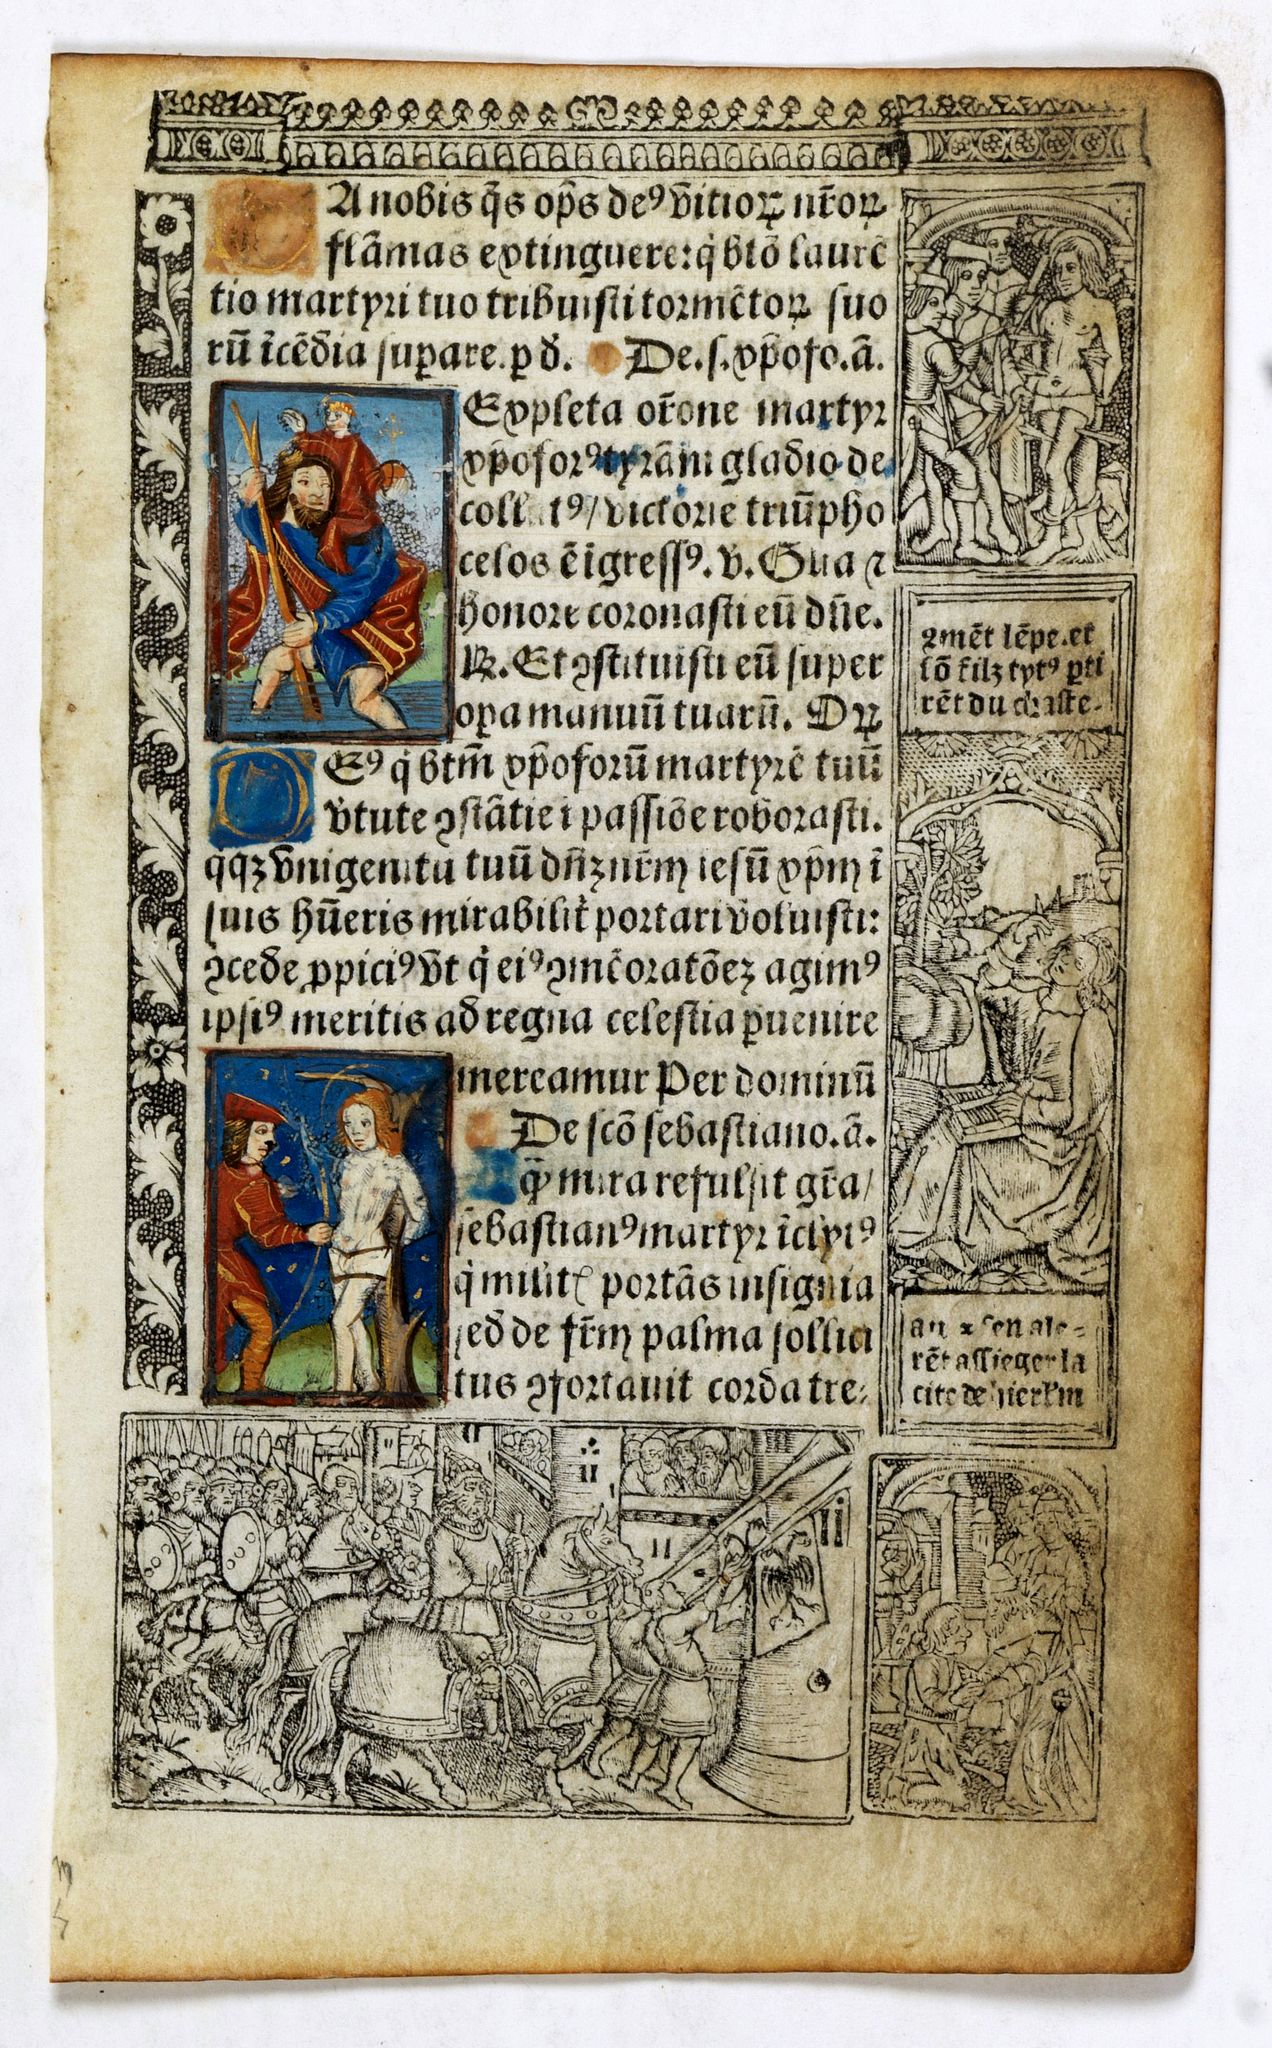 A nobis q̄s op̄s deꝰ v̄itioꝝ nr̄oꝝ
flāmas extinguere: q̇ btō laurē
tio martyri tuo tribuisti tormētoꝝ suo
rū īcēdia suꝑare. ꝑ d. De. s. xp̄ofo. ā.
Expleta or̄one martyr
xp̄oforꝰ tyrāni gladio de
coll tꝰ / victorie triūpho
celos ē īgressꝰ. v. Glia ⁊
honore coronasti eū dn̄e.
℟. Et ꝯstituisti eū super
oꝑa manuū tuarū. Oꝝ
Eꝰ q̇ btm̄ xp̄oforū martyrē tuū
v̄tute ꝯstātie i passiōe roborasti.
qqꝫ vnigenitū tuū dn̄ꝫ nr̄m iesū xp̄m ī
suis hūeris mirabilit̄ portari voluisti:
ꝯcede ꝓpiciꝰ vt q̇ eiꝰ ꝯmēoratōeꝫ agimꝰ
ipsiꝰ meritis ad regna celestia ꝑuenire
mereamur Per dominū
De scō sebastiano. ā.
q̄ȝ mira refulsit gr̄a /
sebastianꝰ martyr īclytꝰ
q̇ milit portās insignia
sed de fr̄m palma sollici
tus ꝯfortauit corda tre-
ꝯmēt lēpe. et
sō filz tytꝰ ꝑti
rēt du chaste-
au ⁊ sen ale-
rēt assieger la
cite de hierłm